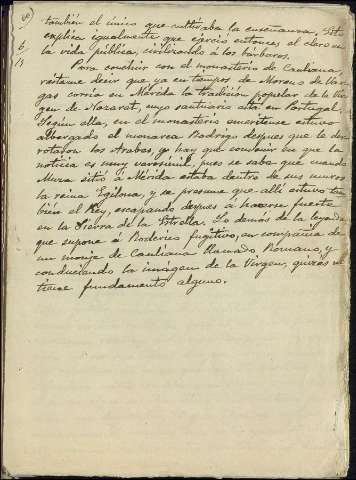 60
también el único que cultivaba la enseñanza. Esto
explica igualmente que ejerció entonces el clero en
la vida pública, civilizando á los bárbaros.
Para concluir con el monasterio de Cauliana,
réstame decir que ya en tiempos de Moreno de Var-
gas corría en Mérida la tradición popular de la Vir-
gen de Nazaret, cuyo santuario está en Portugal.
Según ella, en el monasterio emeritense estuvo
albergado el monarca Rodrigo después que le de-
rrotaron los Árabes, y hay que convenir en que la
noticia es muy verosímil, pues se sabe que cuando
Muza sitió á Mérida estaba dentro de sus muros
la reina Egilona, y se presume que allí estuvo tam-
bién el Rey, escapando después á hacerse fuerte
en la Sierra de la Estrella. Lo demás de la leyenda
que supone á Roderico fugitivo, en compañía de
un monje de Cauliana llamado Romano, y
conduciendo la imágen de la Virgen, quizás no
tiene fundamento alguno.